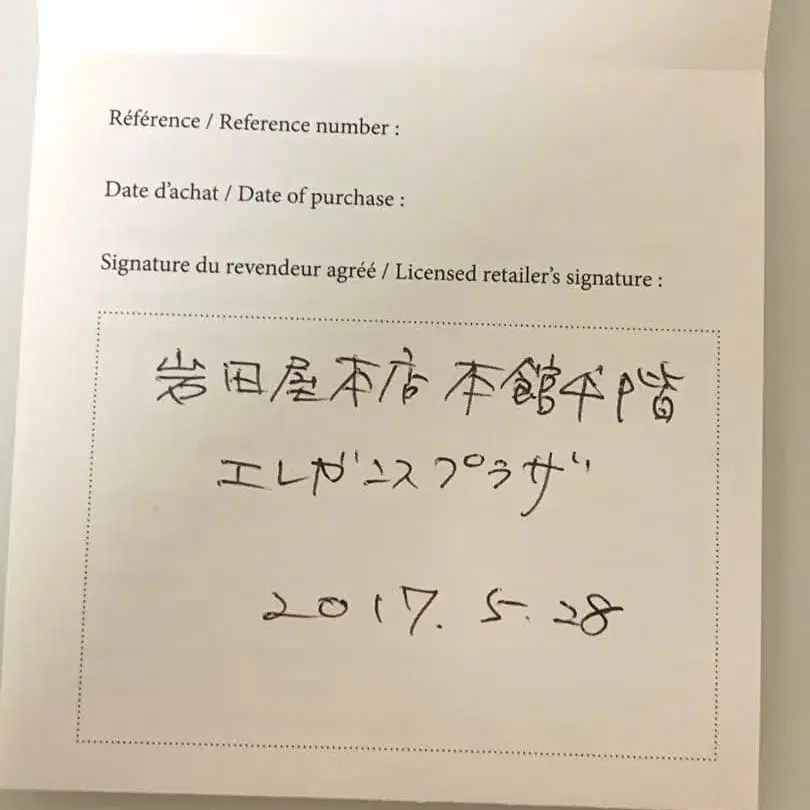 Référence / Reference number :
Date d'achat / Date of purchase :
Signature du revendeur agréé / Licensed retailer's signature :
岩田屋本店 本館 階
エレガンスプラザ
2017. 5. 28